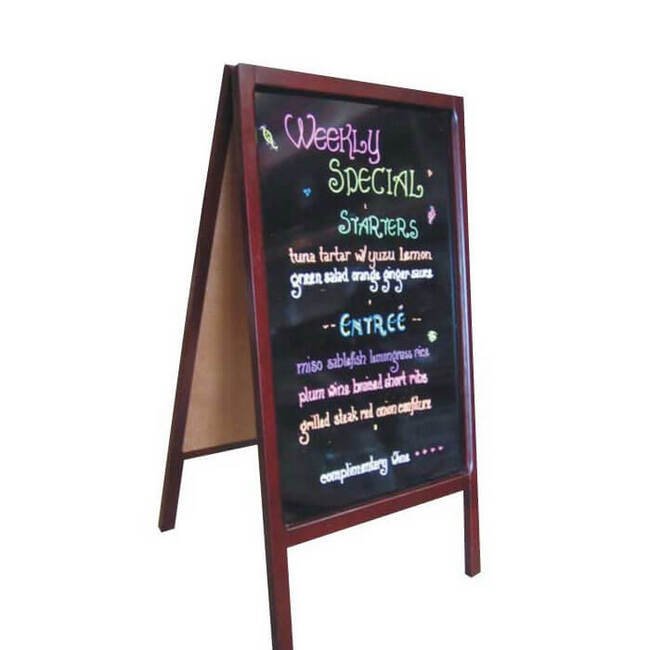 WEEKLY
SPECIAL
STARTERS
tuna tartar w/ yuzu lemon
green salad orange ginger sauce
-- ENTREÉ --
miso sablefish lemongrass rice
plum wine braised short ribs
grilled steak red onion confiture
complimentary wine ....